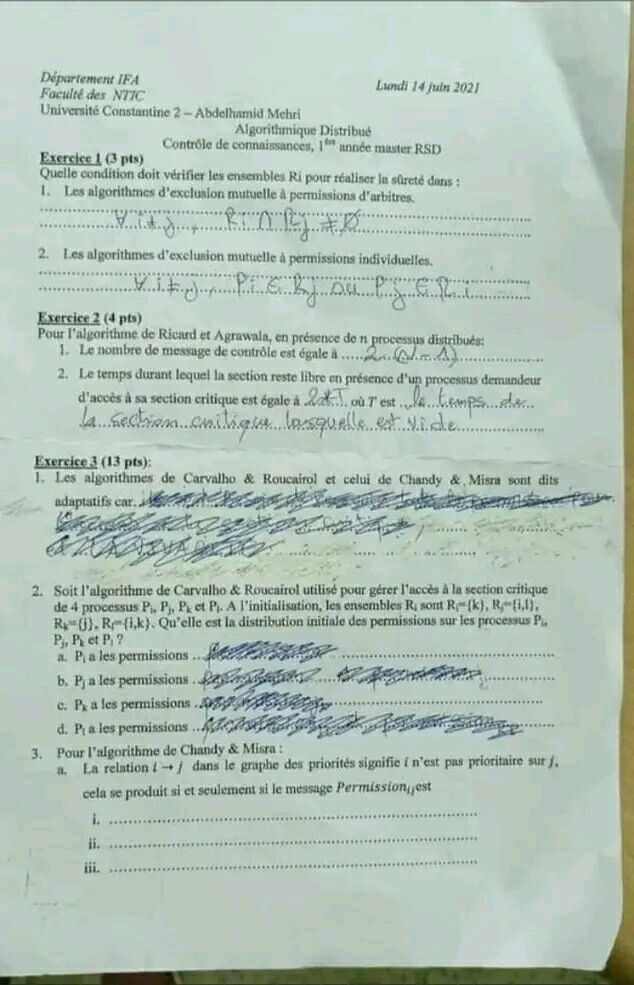 Département IFA
Lundi 14 juin 2021
Faculté des NTIC
Université Constantine 2 – Abdelhamid Mehri
Algorithmique Distribué
Contrôle de connaissances, 1ère année master RSD
Exercice 1 (3 pts)
Quelle condition doit vérifier les ensembles Ri pour réaliser la sûreté dans :
1. Les algorithmes d'exclusion mutuelle à permissions d'arbitres.
∀ i≠j, Ri ∩ Rj ≠ Ø
2. Les algorithmes d'exclusion mutuelle à permissions individuelles.
∀ i≠j, Pi ∈ Rj ou Pj ∈ Ri
Exercice 2 (4 pts)
Pour l'algorithme de Ricard et Agrawala, en présence de n processus distribués:
1. Le nombre de message de contrôle est égale à ..... 2 (N-1)
2. Le temps durant lequel la section reste libre en présence d'un processus demandeur
d'accès à sa section critique est égale à 2*T où T est le temps de
la section critique lorsquelle est vide
Exercice 3 (13 pts):
1. Les algorithmes de Carvalho & Roucairol et celui de Chandy & Misra sont dits
adaptatifs car.
2. Soit l'algorithme de Carvalho & Roucairol utilisé pour gérer l'accès à la section critique
de 4 processus Pi, Pj, Pk et Pl. A l'initialisation, les ensembles Ri sont Ri={k}, Rj={i,l},
Rk={j}, Rl={i,k}. Qu'elle est la distribution initiale des permissions sur les processus Pi,
Pj, Pk et Pl ?
a. Pi a les permissions
b. Pj a les permissions
c. Pk a les permissions
d. Pl a les permissions
3. Pour l'algorithme de Chandy & Misra :
a. La relation i → j dans le graphe des priorités signifie i n'est pas prioritaire sur j,
cela se produit si et seulement si le message Permissionij est
i.
ii.
iii.